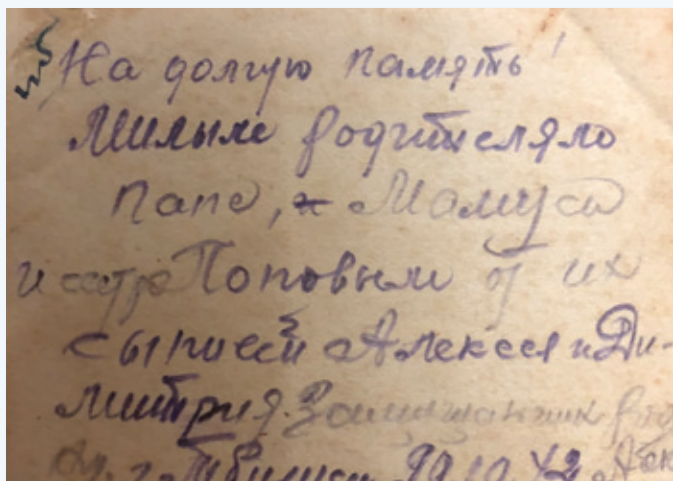 На долгую память!
Милым родителям
папе, и Мамуси
и сестре Поповым от их
сыписей Алексея и Ди-
митрия. Защищающих
г. Тбилиси